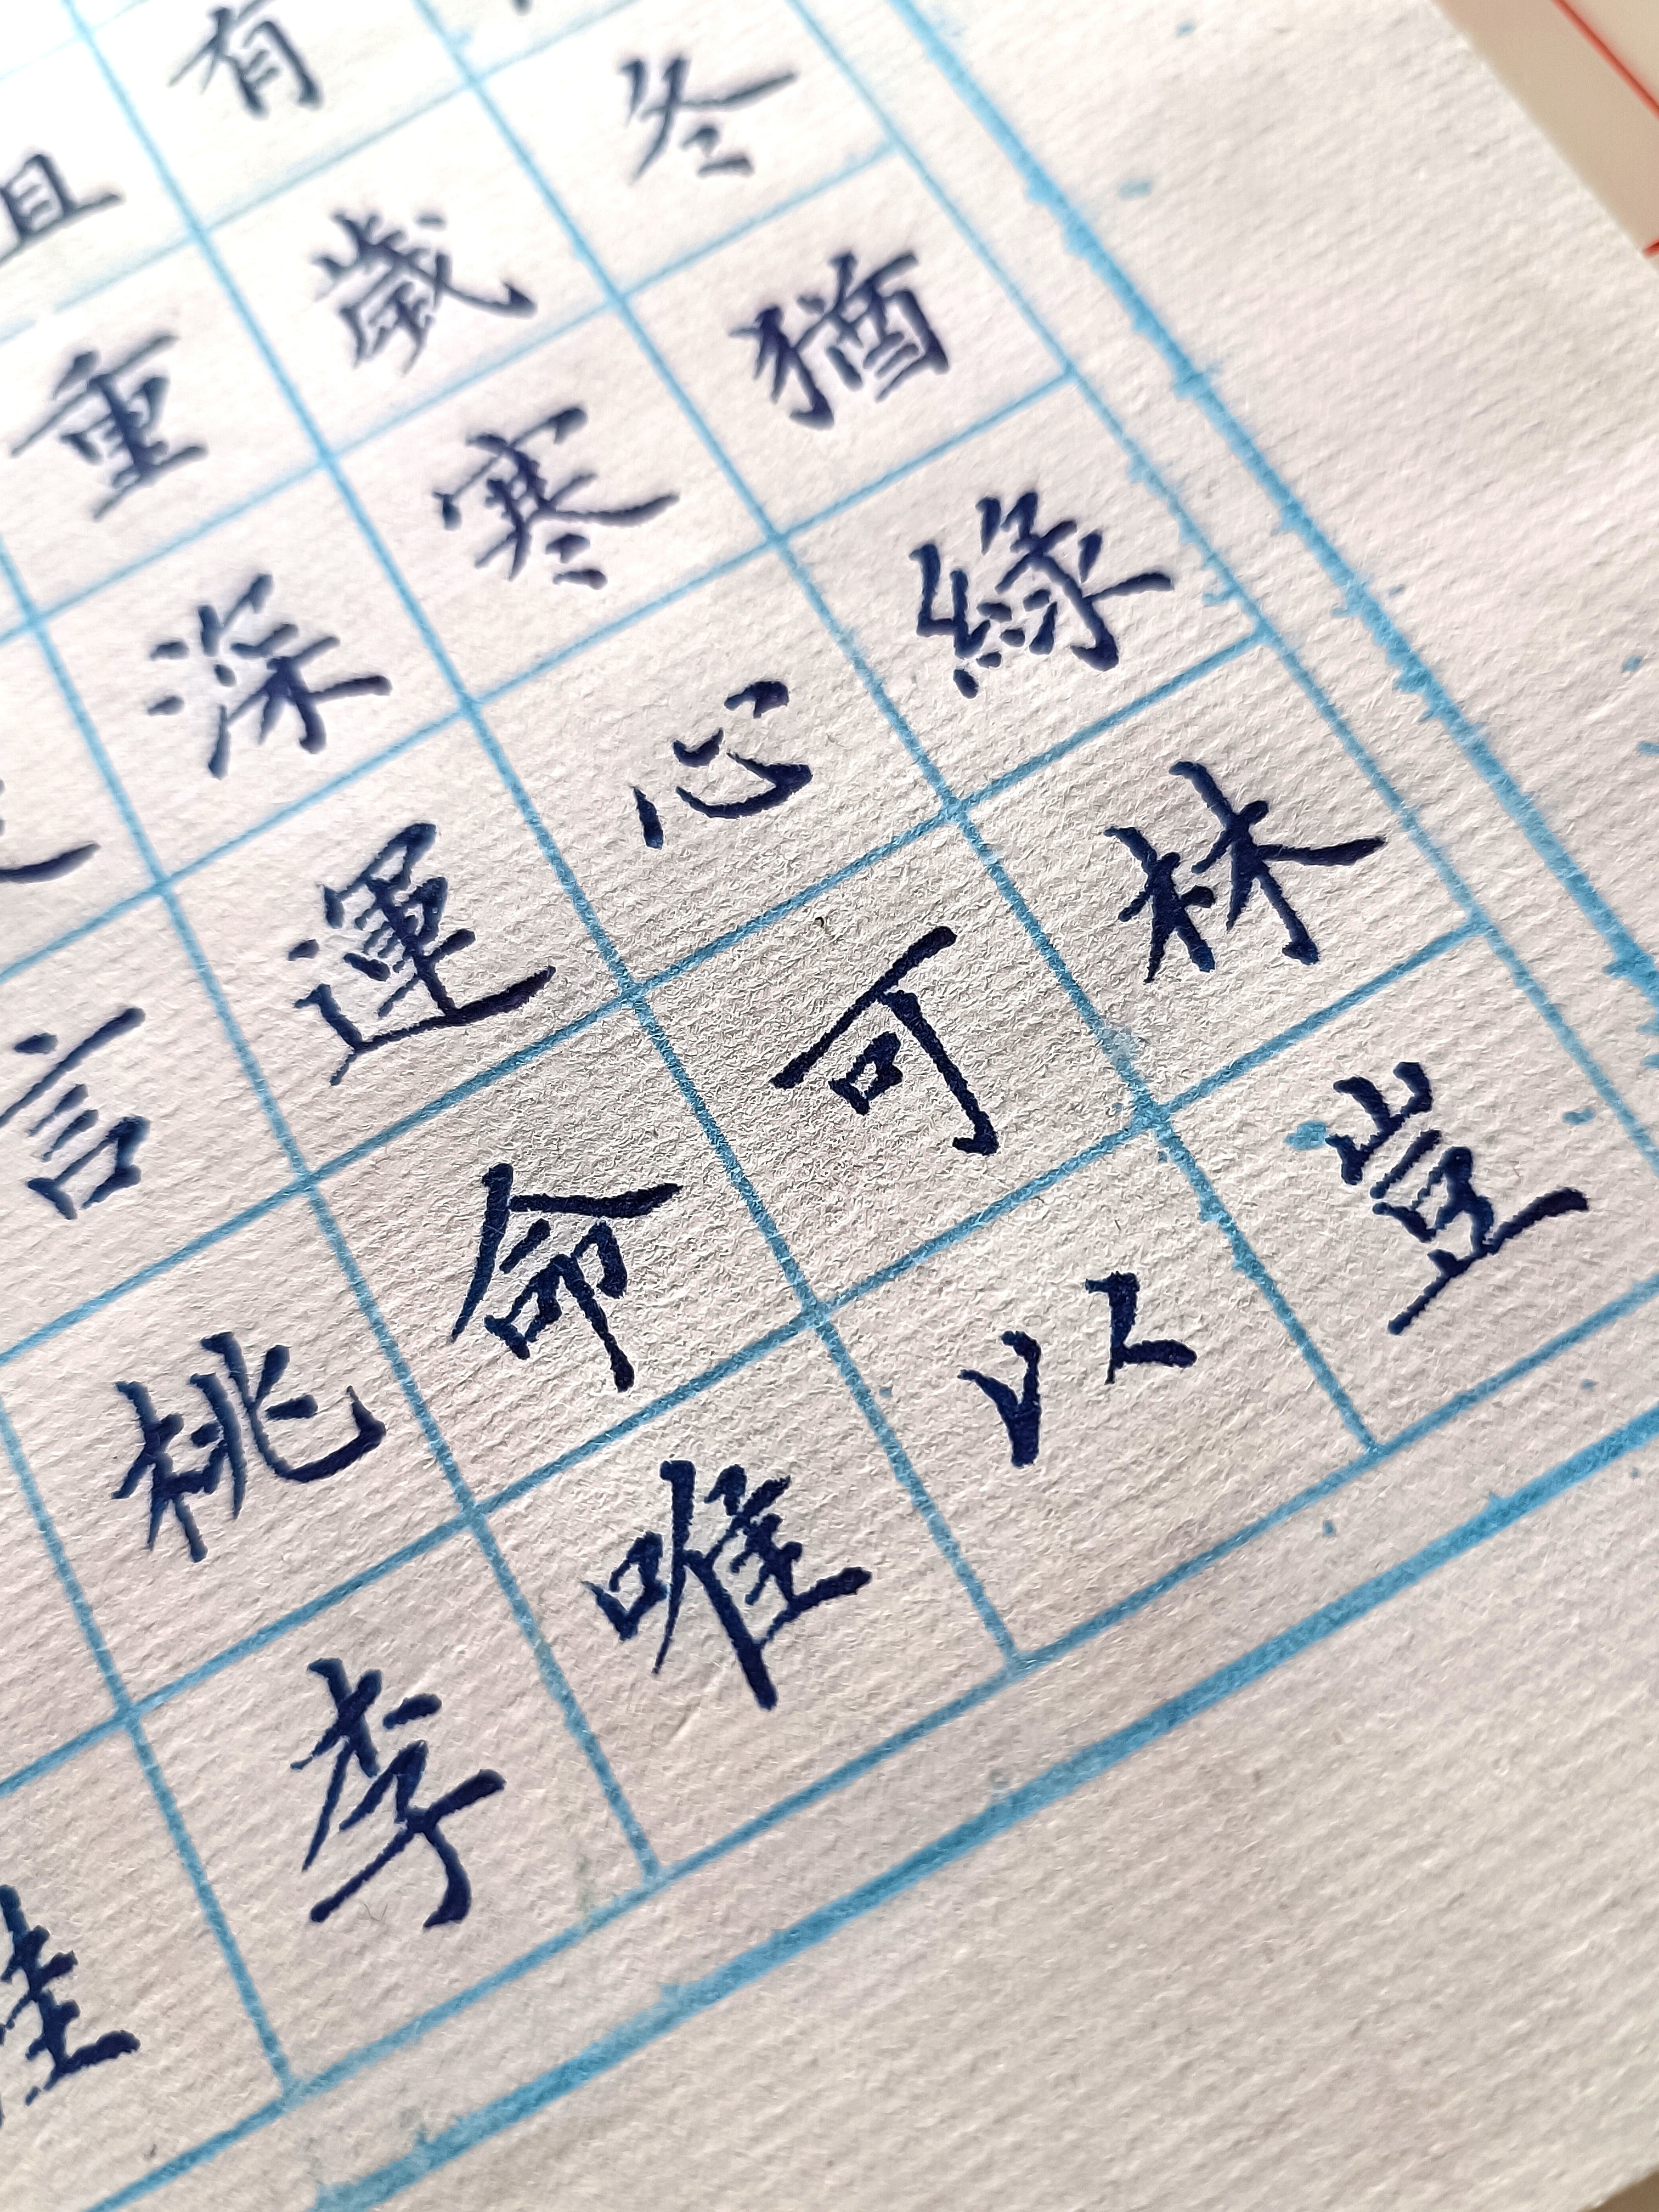 冬猶綠林豈
有歲寒心可以
重深運命唯
言桃李